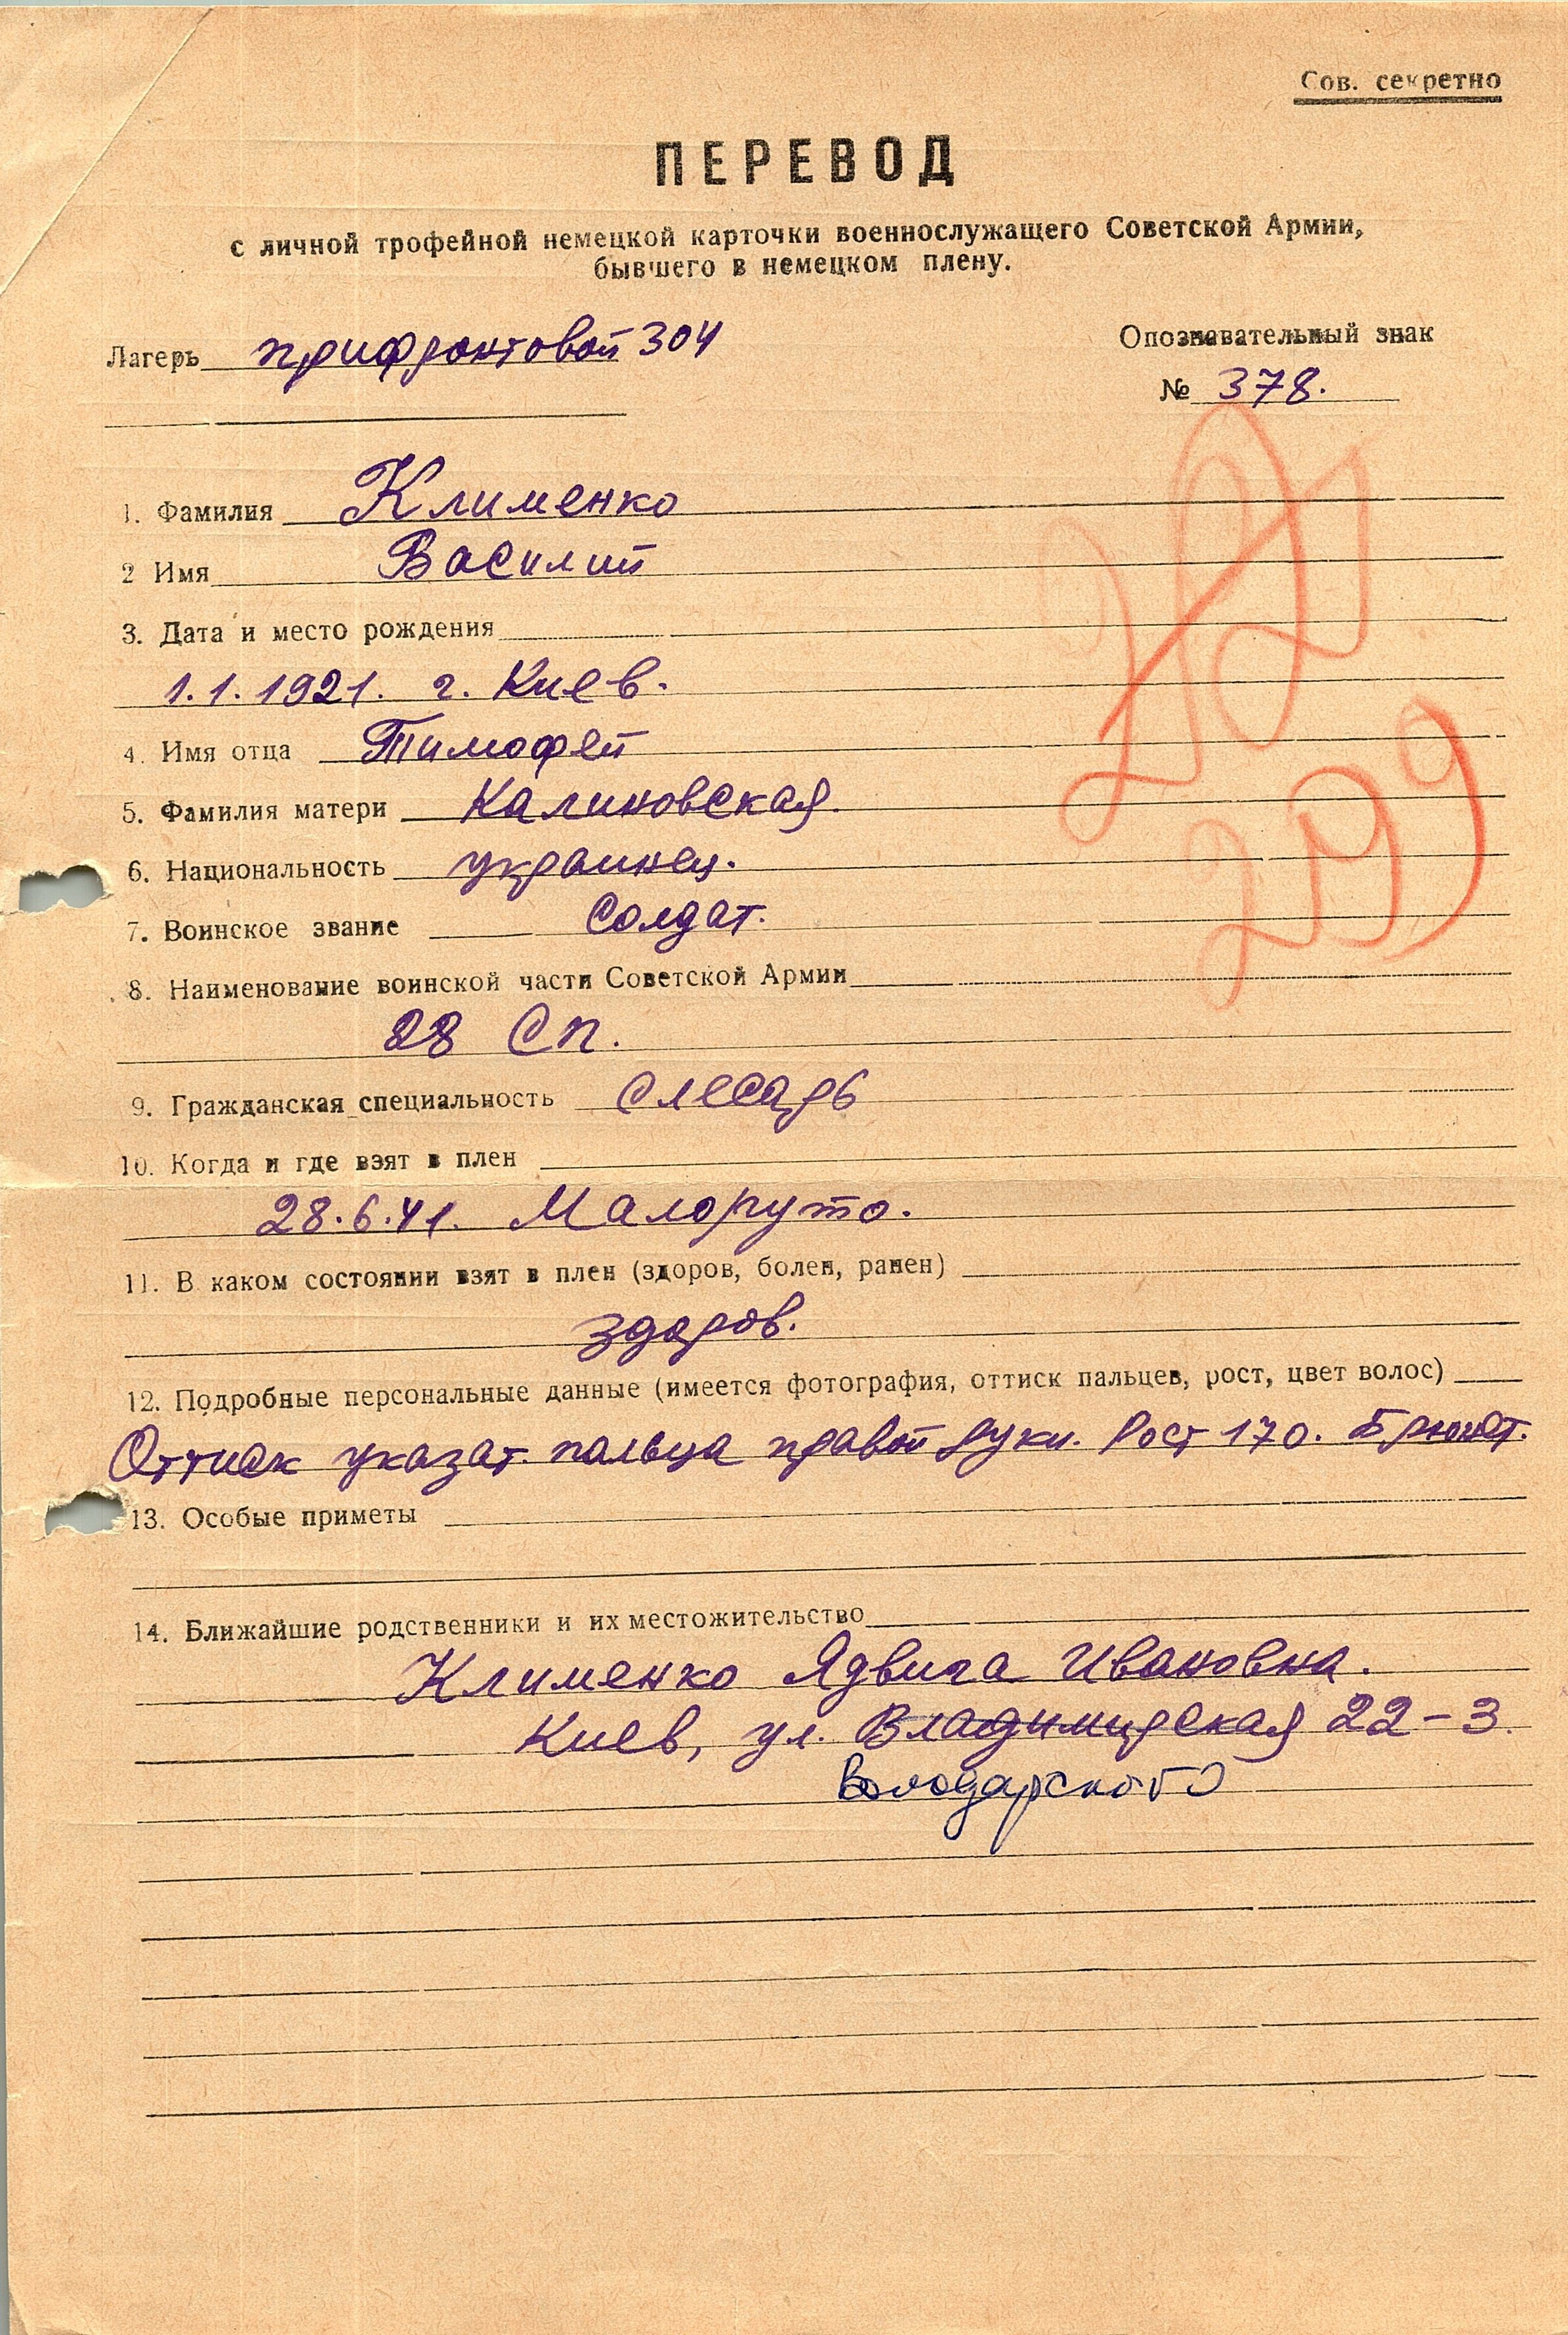 Сов. секретно
ПЕРЕВОД
с личной трофейной немецкой карточки военнослужащего Советской Армии,
бывшего в немецком плену.
Лагерь прифронтовой 304
Опознавательный знак
№ 378.
1. Фамилия Клименко
2 Имя Василий
3. Дата и место рождения
1.1.1921. г. Киев.
4. Имя отца Тимофей
5. Фамилия матери Калиновская.
6. Национальность украинец.
7. Воинское звание Солдат.
8. Наименование воинской части Советской Армии
28 Сп.
9. Гражданская специальность слесарь
10. Когда и где взят в плен
28.6.41. Малоруто.
11. В каком состоянии взят в плен (здоров, болен, ранен)
здоров.
12. Подробные персональные данные (имеется фотография, оттиск пальцев, рост, цвет волос)
Оттиск указат. пальца правой руки. Рост 170. Брюнет.
13. Особые приметы
14. Ближайшие родственники и их местожительство
Клименко Ядвига Ивановна.
Киев, ул. Владимирская 22-3.
Володарского
299